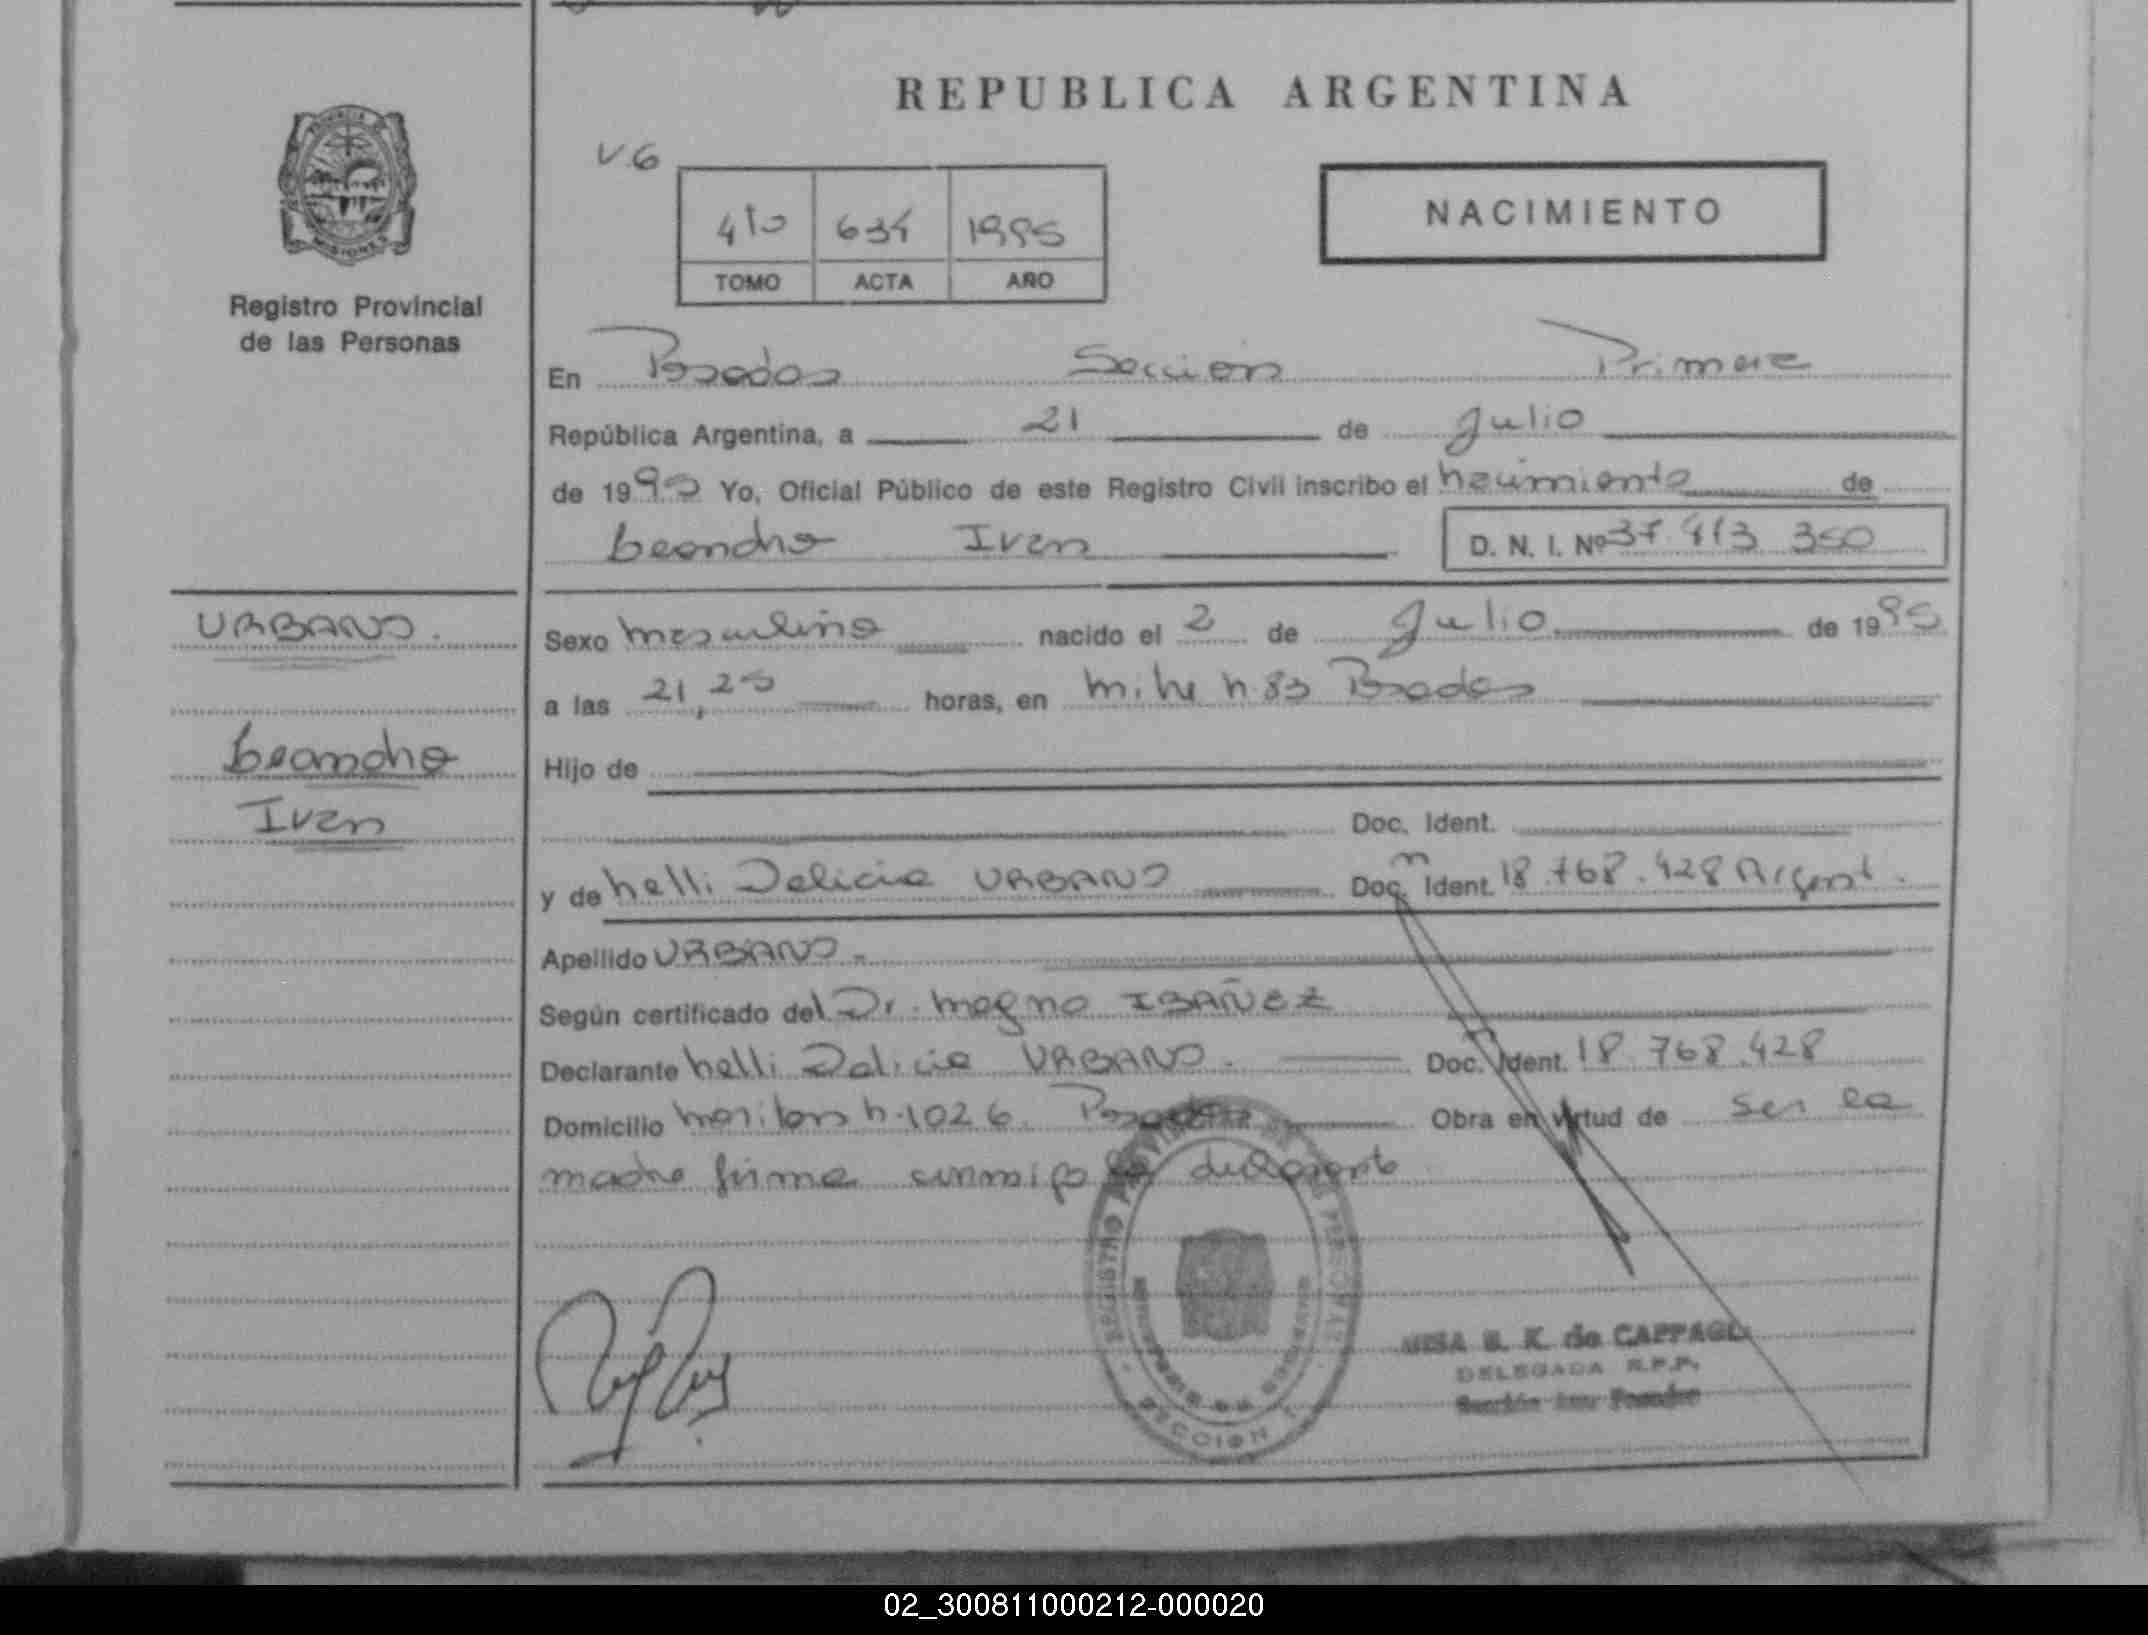 REPUBLICA ARGENTINA
V.6
NACIMIENTO
4to 634 1995
TOMO ACTA AÑO
PROVINCIA DE
MISIONES
Registro Provincial
de las Personas
En Posadas Sección Primera
República Argentina, a 21 de Julio
de 1995 Yo, Oficial Público de este Registro Civil inscribo el nacimiento de
Leandro Ivan D. N. I. Nº 37 413 350
URBANO.
Sexo masculino nacido el 2 de Julio de 1995
a las 21,25 horas, en Mitre n 83 Posadas
Leandro
Hijo de
Ivan
Doc. Ident.
y de Nelli Delicia URBANO Doc. Ident. 18.768.428 Argent.
Apellido URBANO.
Según certificado del Dr. Magno IBAÑEZ
Declarante Nelli Delicia URBANO. Doc. Ident. 18.768.428
Domicilio n.1026 Posadas Obra en virtud de ser la
madre firma conmigo la declarante
REGISTRO PROVINCIAL DE LAS PERSONAS
SECCION 1
MISA E. K. de CAPPAGLI
DELEGADA R.P.P.
Sección 1ra. Posadas
02_300811000212-000020